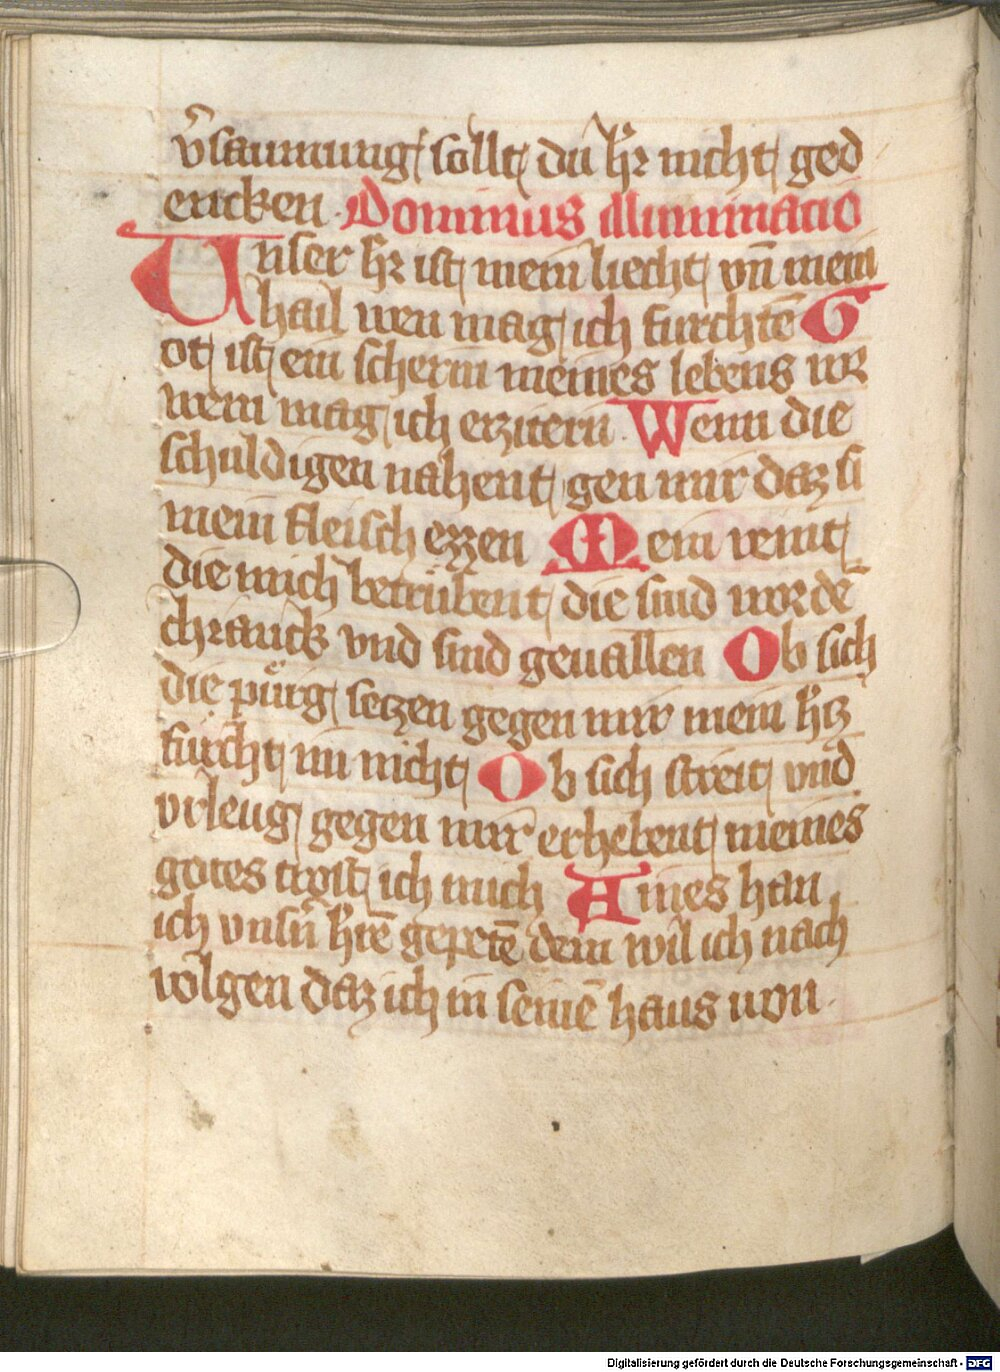 v̄saumung sollt du h̄r nicht ged
encken. Dominus illuminacio
Unser h̄r ist mein liecht vn̄ mein
hail wen mag ich furchtē G
ot ist ein scherm meines lebens vor
wem mag ich erzitern. Wenn die
schuldigen nahent gen mir daz si
mein fleisch ezzen Mein veint
die mich betrübent die sind wordē
chranck vnd sind geuallen Ob sich
die pürg setzen gegen mir mein h̄tz
furcht im nicht Ob sich streit vnd
vrleug gegen mir erhebent meines
gotes tröst ich mich Aines han
ich vnsn̄ h̄rē gepetē dem wil ich nach
volgen daz ich in seinē haus won.
Digitalisierung gefördert durch die Deutsche Forschungsgemeinschaft - DFG